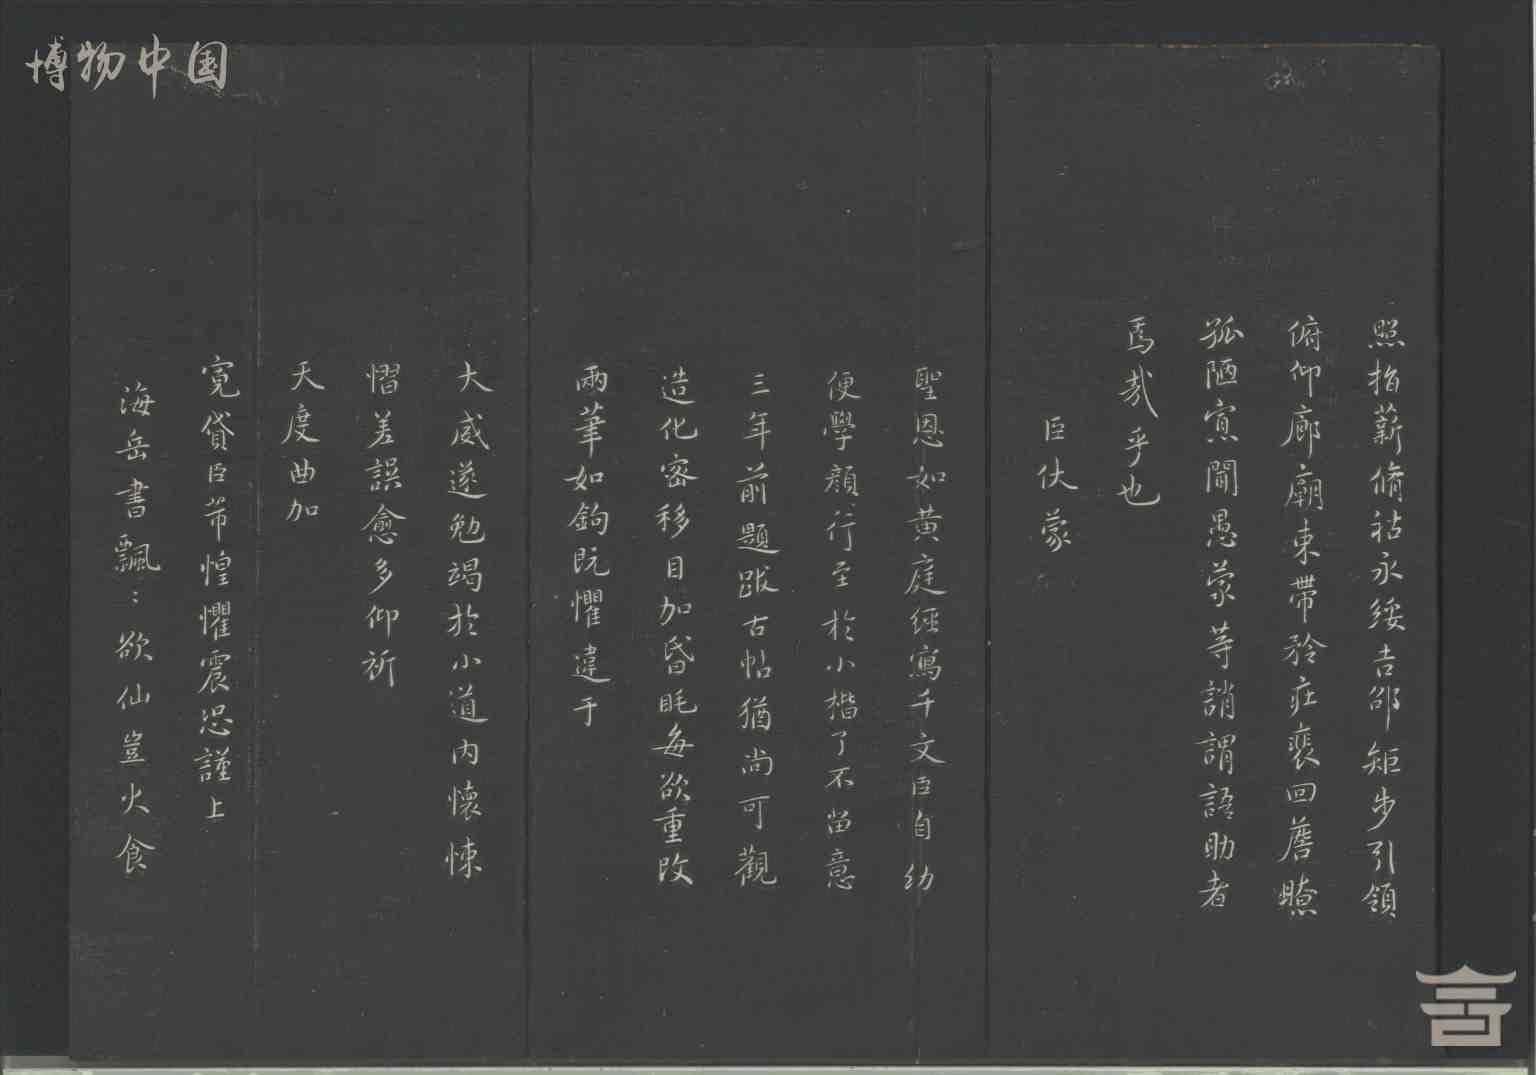 博物中国
照指薪脩祜永綏吉邵矩步引領
俯仰廊廟束帶矜莊裴回瞻眺
孤陋寡聞愚蒙等誚謂語助者
焉哉乎也
臣伏蒙
聖恩如黃庭經寫千文臣自幼
便學顏行至於小楷了不留意
三年前題跋古帖猶尚可觀
造化密移目加昏眊每欲重改
兩筆如鉤既懼違于
大威遂勉竭於小道內懷悚
慴差誤愈多仰祈
天度曲加
寬貸臣芾惶懼震恐謹上
海岳書飄:欲仙豈火食